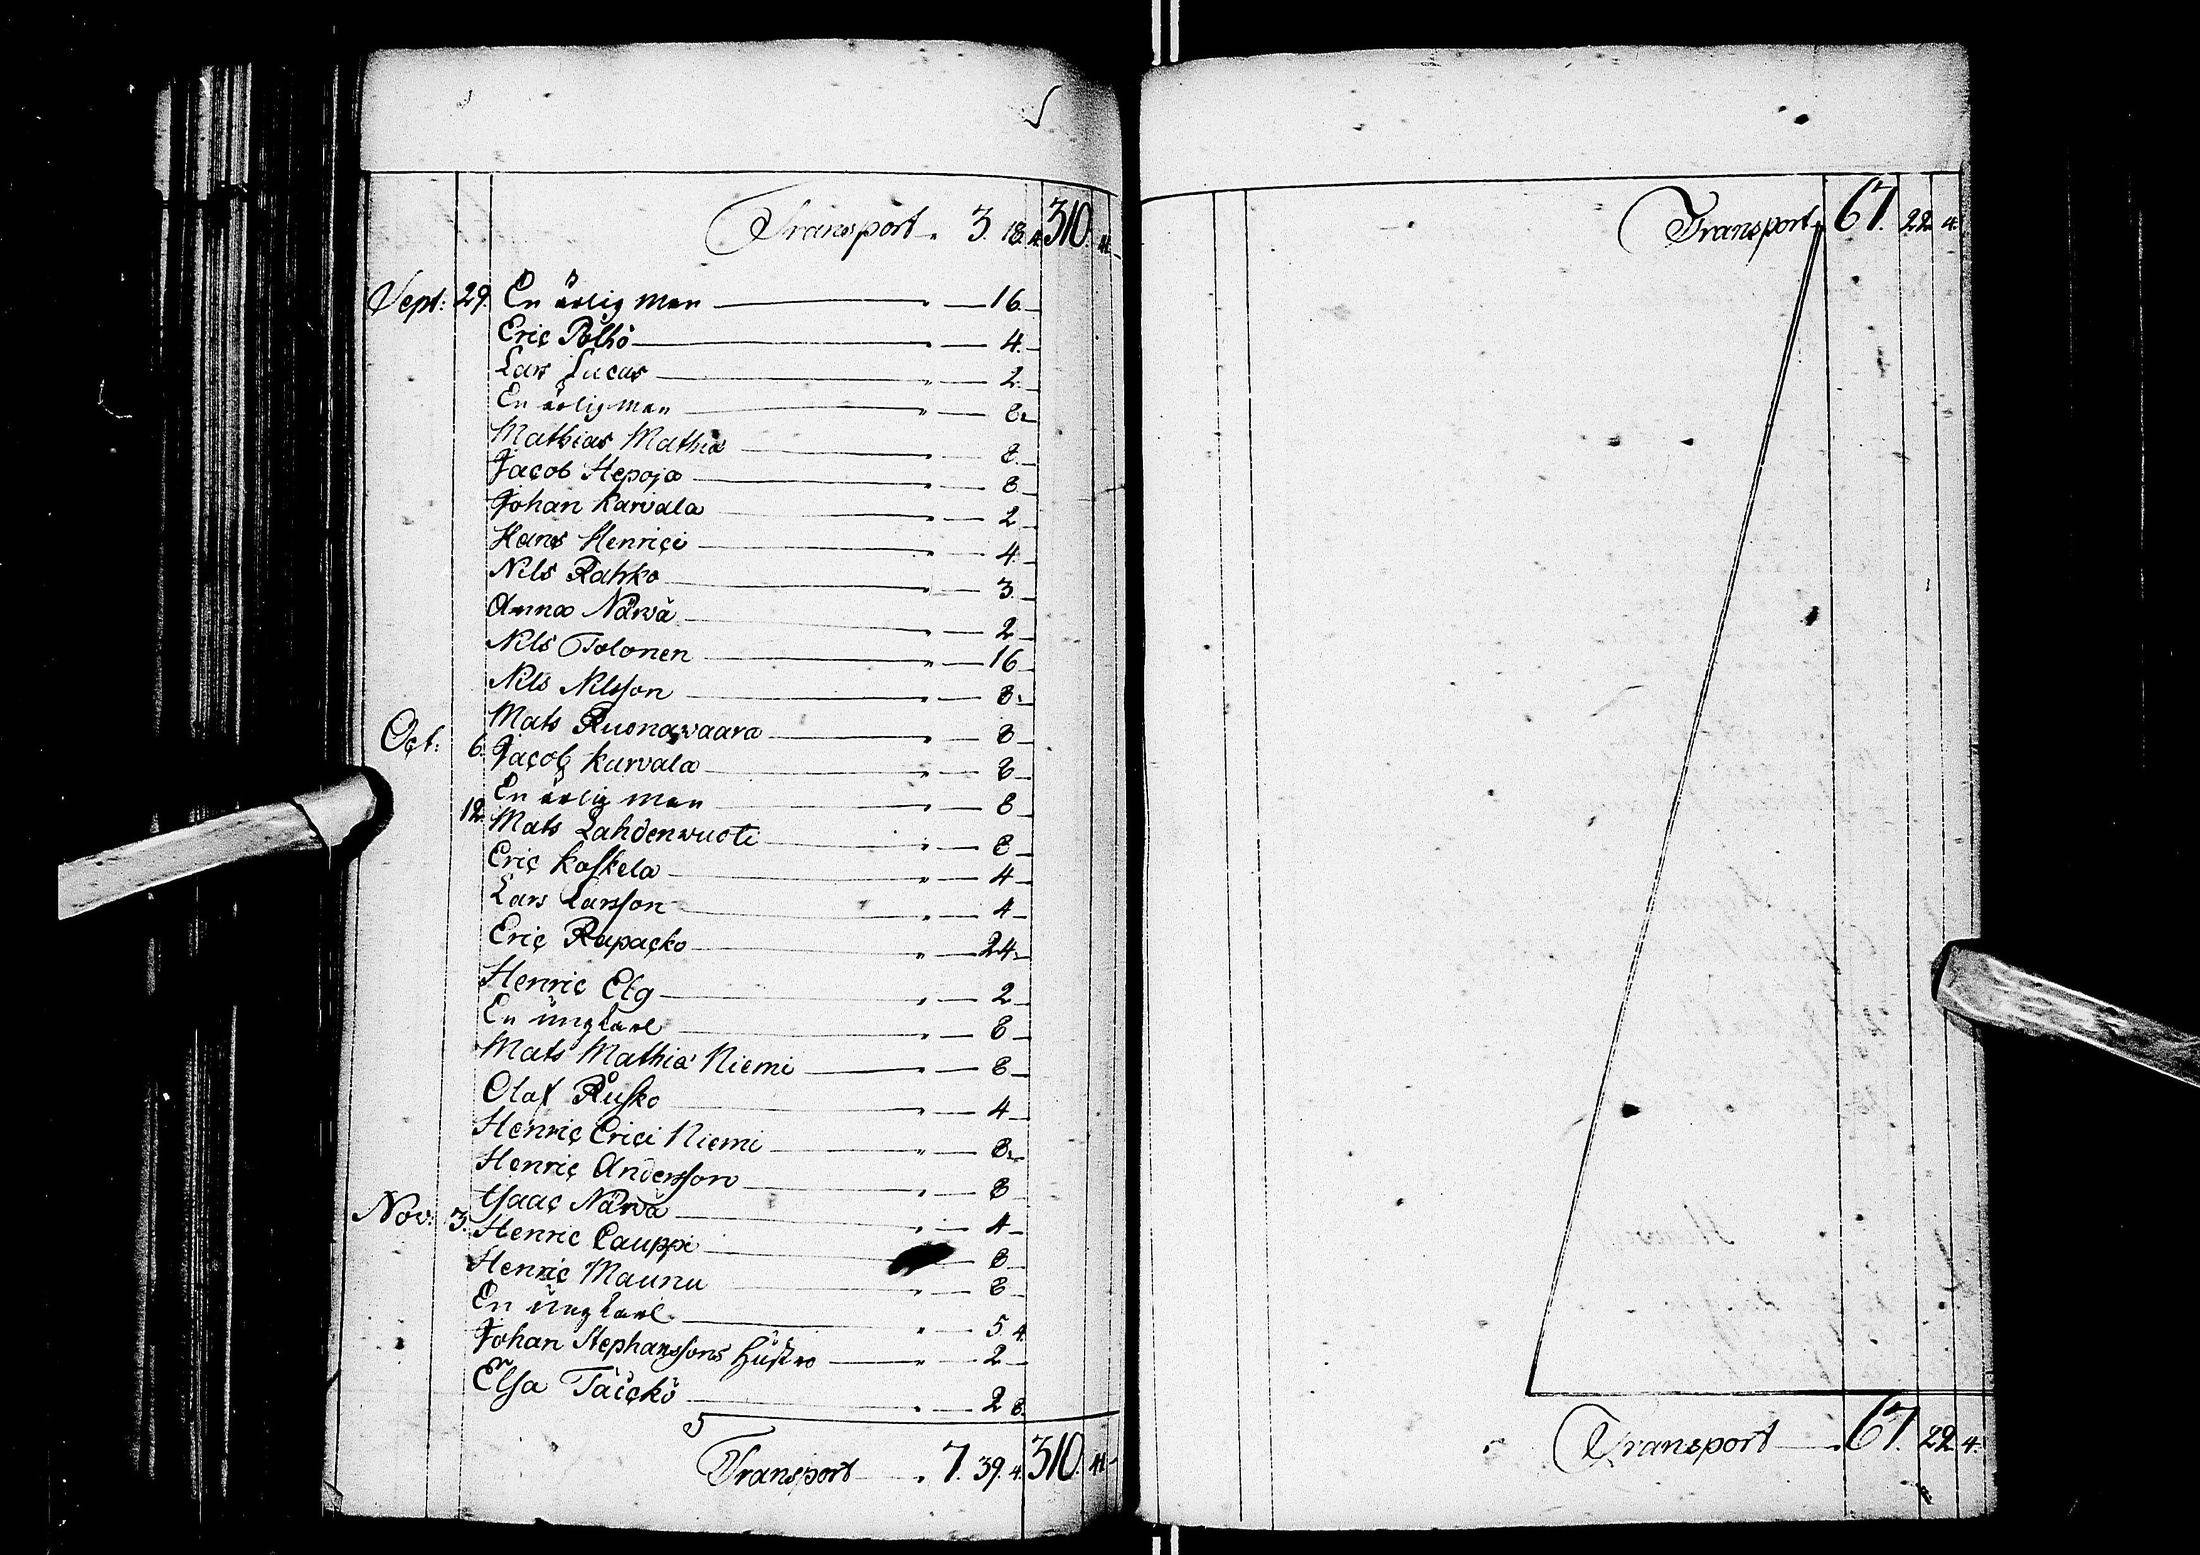 Transport 3. 18. 4. 310. 41.
Sept: 29. En ärlig man " 16.
Eric Pölhö " 4.
Lars Lucas " 2.
En ärlig man " 8.
Mathias Mathiæ " 8.
Jacob Hepoja " 8.
Johan Karvala " 2
Hans Henrici " 4.
Nils Rahko " 3.
Anna Närvä " 2
Nils Tolonen " 16
Nils Nilsson " 8.
Mats Ruonawaara " 8
Oct: 6. Jacob Kurvala " 8
En ärlig man " 8
12. Mats Lahdenwuoti " 8
Eric Koskela " 4
Lars Larsson " 4
Eric Rapacko " 24.
Henric Elg " 2
En ung karl " 8
Mats Mathiæ Niemi " 8
Olof Rusko " 4
Henric Erici Niemi " 8.
Henric Andersson " 8
Isaac Närvä " 4
Nov: 3. Henric Lauppi 8
Henric Maunu " 8
En ung karl " 5 4.
Johan Stephanssons hustro " 2
Elsa Täickö " 2 8.
Transport " 7. 39. 4. 310. 41.
Transport 67. 22. 4.
Transport 67. 22. 4.